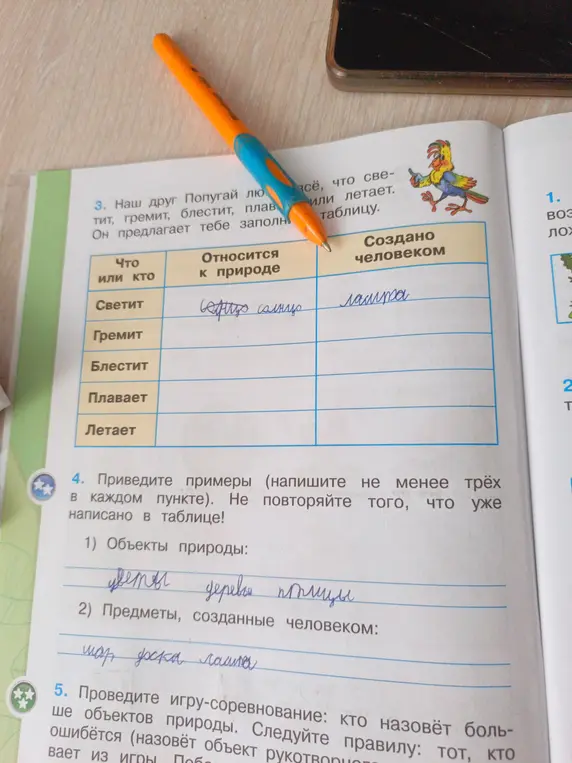 3. Наш друг Попугай лю всё, что све-
тит, гремит, блестит, плав или летает.
Он предлагает тебе заполн таблицу.
Что или кто
Относится к природе
Создано человеком
Светит солнцо лампа
Гремит
Блестит
Плавает
Летает
4. Приведите примеры (напишите не менее трёх
в каждом пункте). Не повторяйте того, что уже
написано в таблице!
1) Объекты природы:
цветы деревья птицы
2) Предметы, созданные человеком:
шар доска лампа
5. Проведите игру-соревнование: кто назовёт боль-
ше объектов природы. Следуйте правилу: тот, кто
ошибётся (назовёт объект рукотворног
вает из игры.
1.
воз
лож
2
т